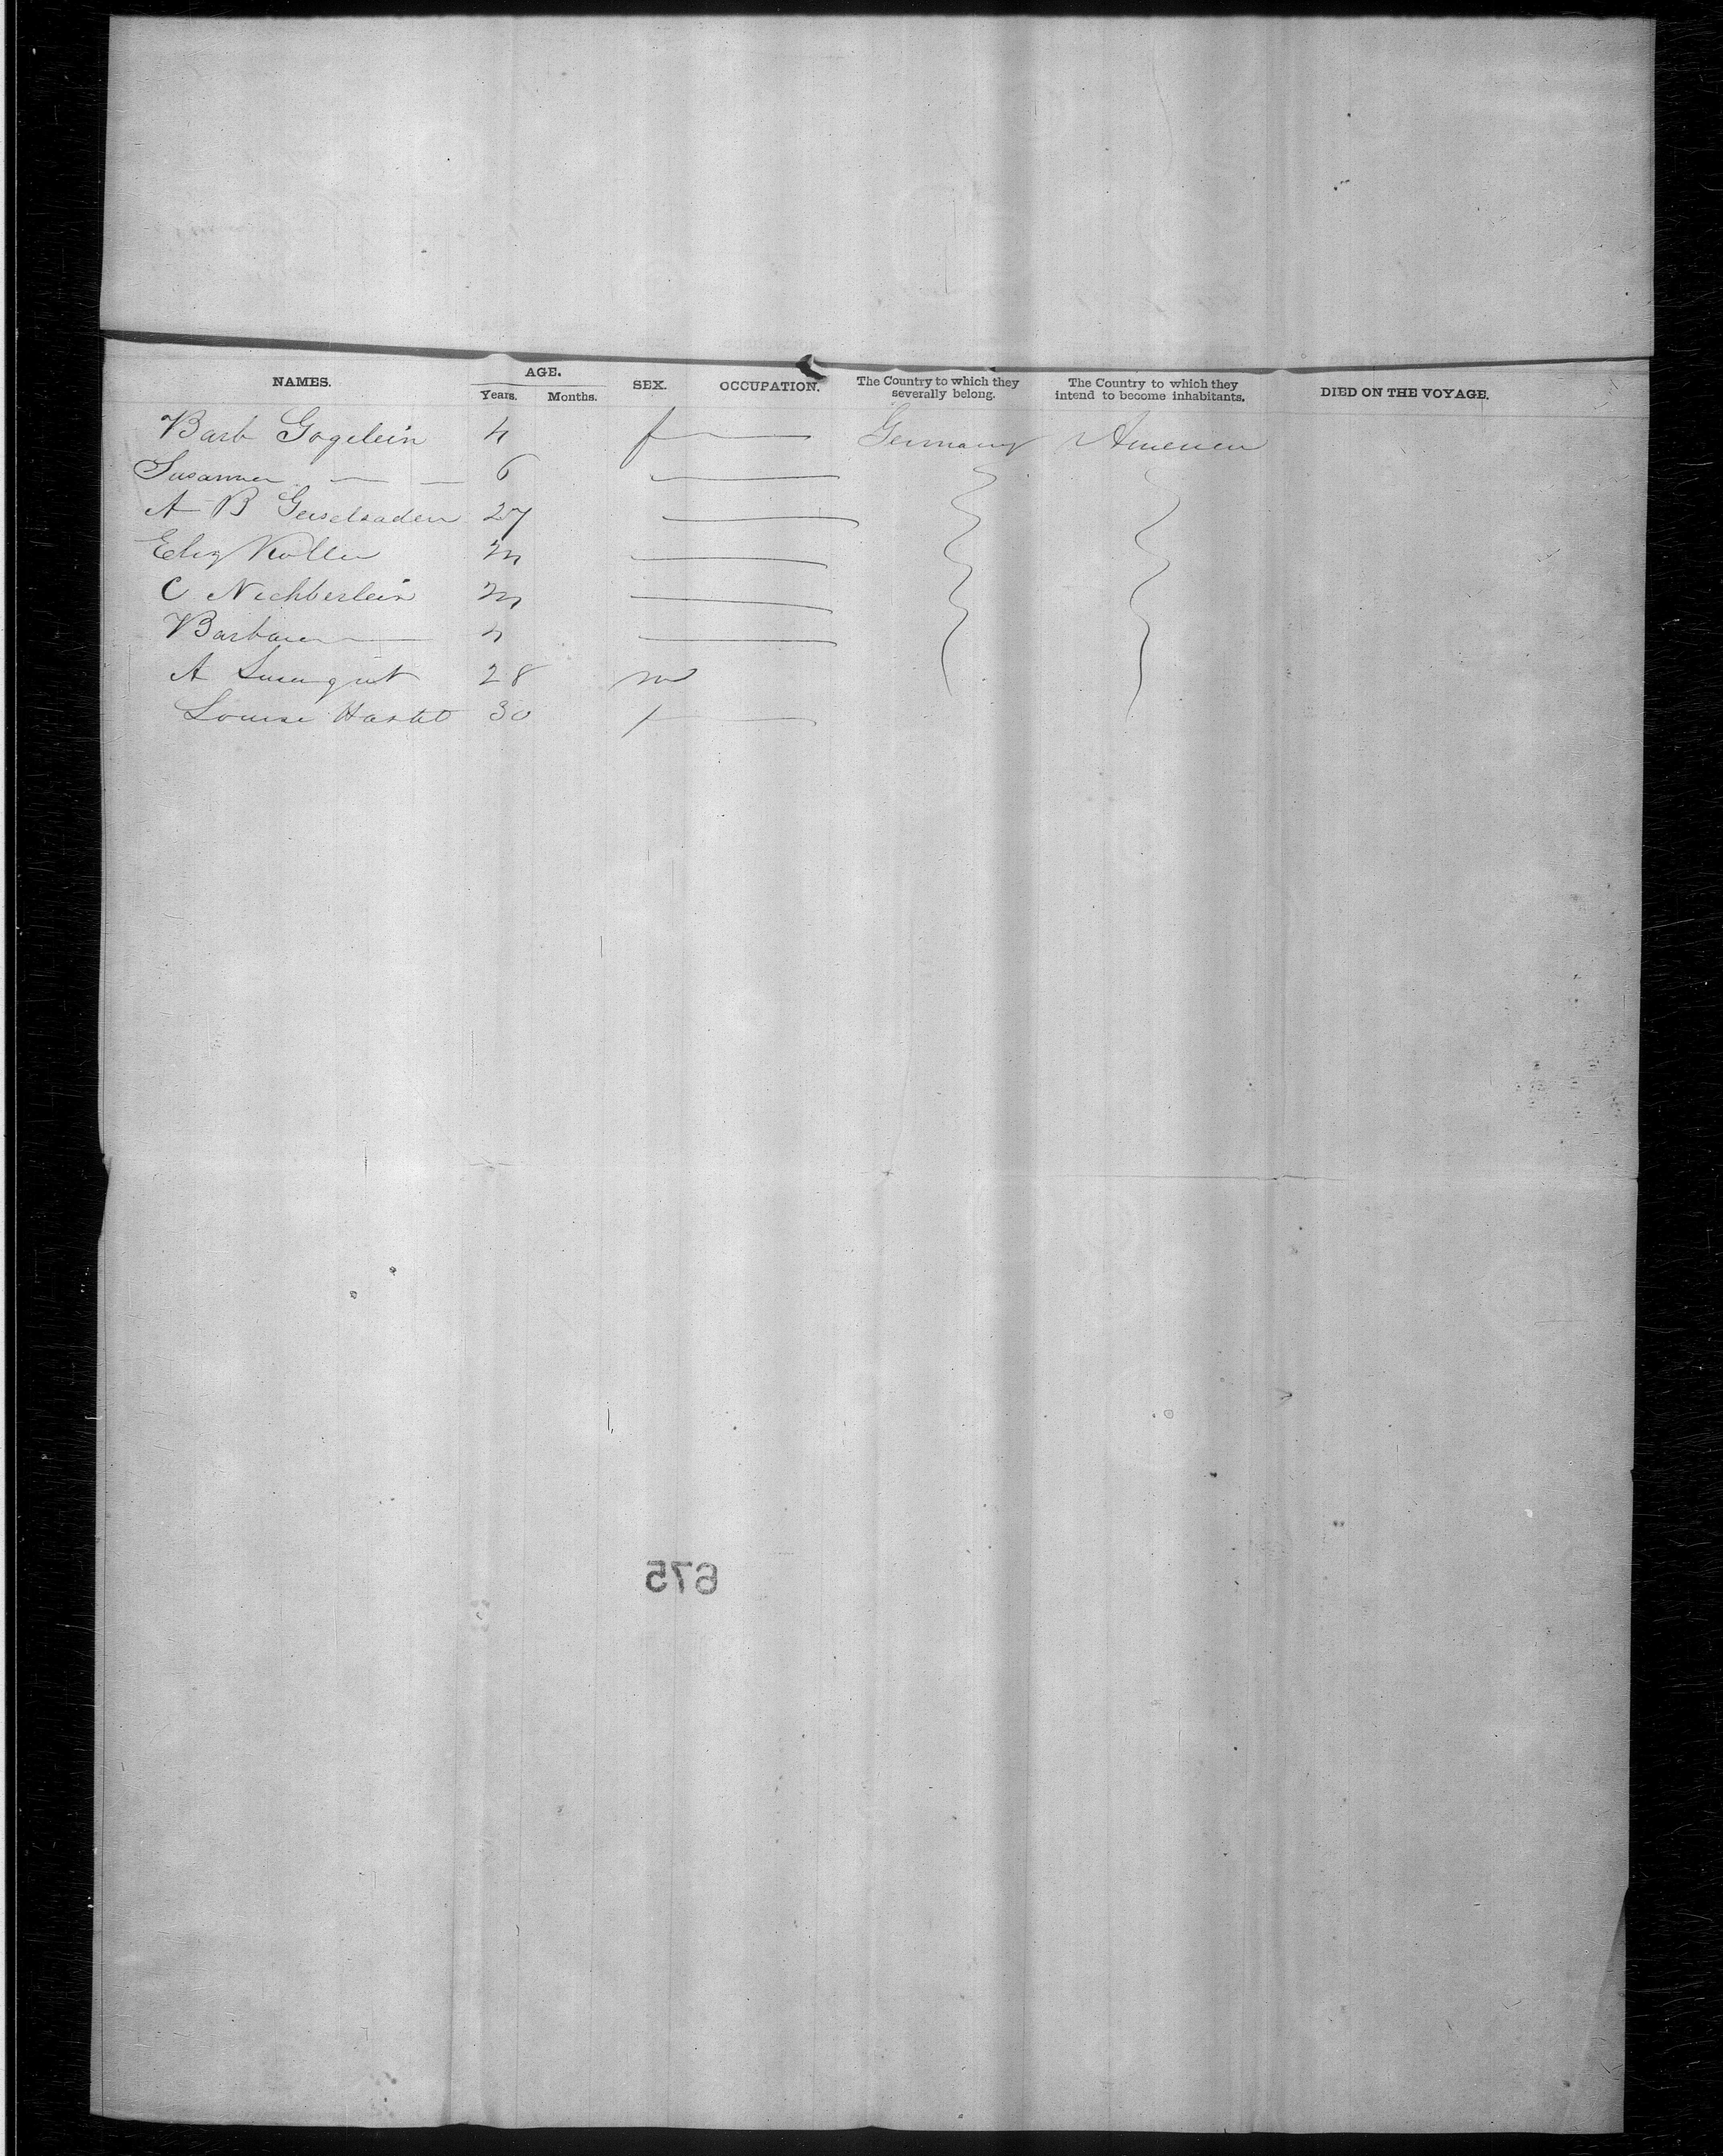 NAMES. AGE. SEX. OCCUPATION. The Country to which they severally belong. The Country to which they intend to become inhabitants. DIED ON THE VOYAGE.
Years. Months.
Barb Gogelein 4 f — Germany America
Susanna — — 6 —
A B 27 —
Eliz Koller 24 —
C Nichberlein 24 —
Barbara — 4 —
A 28 m
Louise 30 f —
675